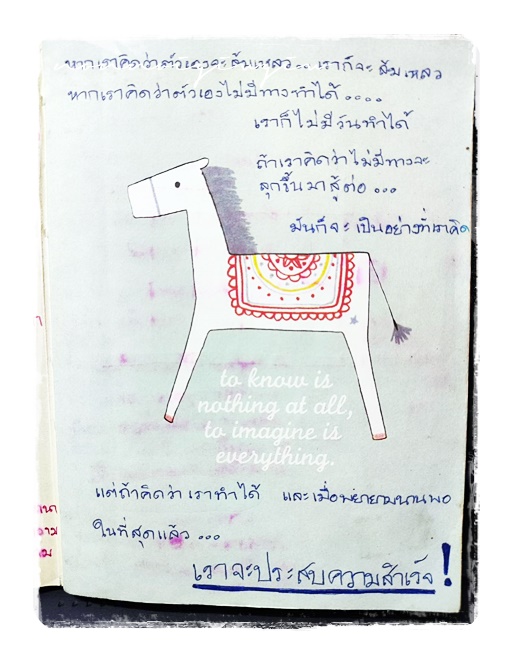 หากเราคิดว่าตัวเองจะล้มเหลว... เราก็จะ ล้มเหลว
หากเราคิดว่าตัวเองไม่มีทางทำได้ ....
เราก็ไม่มีวันทำได้
ถ้าเราคิดว่าไม่มีทางจะ
ลุกขึ้นมาสู้ต่อ ...
มันก็จะ เป็นอย่างที่เราคิด
to know is
nothing at all,
to imagine is
everything.
แต่ถ้าคิดว่า เราทำได้ และเมื่อพยายามนานพอ
ในที่สุดแล้ว ...
เราจะประสบความสำเร็จ !